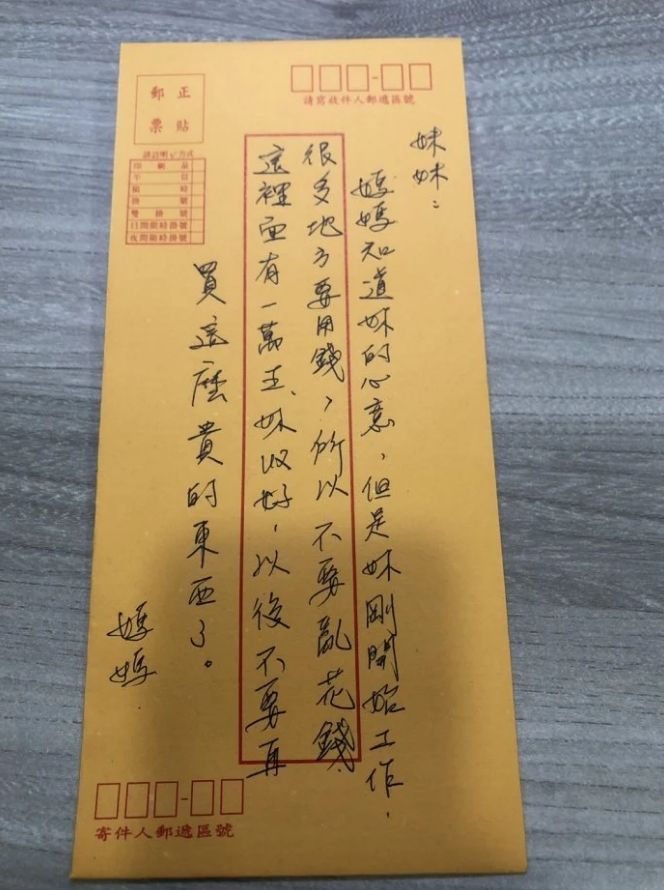 請寫收件人郵遞區號
正貼
郵票
印刷品
平信
限時
掛號
雙掛號
日間限時掛號
夜間限時掛號
妹妹：
媽媽知道妹的心意，但是妹剛開始工作，
很多地方要用錢，所以不要亂花錢，
這裡面有一萬五、妹收好，以後不要再
買這麼貴的東西了。
媽媽
寄件人郵遞區號